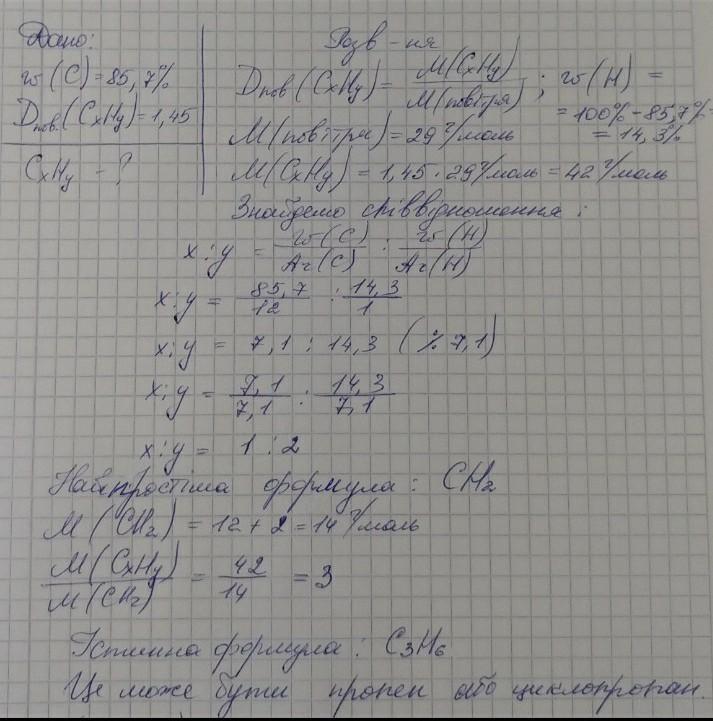 Дано:
w(C) = 85,7%
Dпов.(CxHy) = 1,45
CxHy - ?
Розв - ня
Dпов(CxHy) = M(CxHy) / M(повітря) ; w(H) =
= 100% - 85,7% =
= 14,3%
M(повітря) = 29 г/моль
M(CxHy) = 1,45 · 29 г/моль = 42 г/моль
Знайдемо співвідношення :
x : y = w(C) / Ar(C) : w(H) / Ar(H)
x : y = 85,7 / 12 : 14,3 / 1
x : y = 7,1 : 14,3 (: 7,1)
x : y = 7,1 / 7,1 : 14,3 / 7,1
x : y = 1 : 2
Найпростіша формула : CH₂
M (CH₂) = 12 + 2 = 14 г/моль
M(CxHy) / M(CH₂) = 42 / 14 = 3
Істинна формула : C₃H₆
Це може бути пропен або циклопропан.